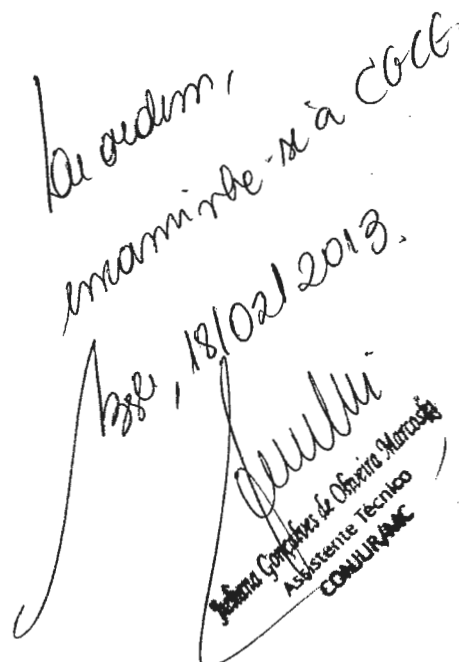 De ordem,
encaminhe-se à CGCE.
Bsb, 18/02/2013.
Juliana Gonçalves de Oliveira Marcos
Assistente Técnico
CONJUR/MC